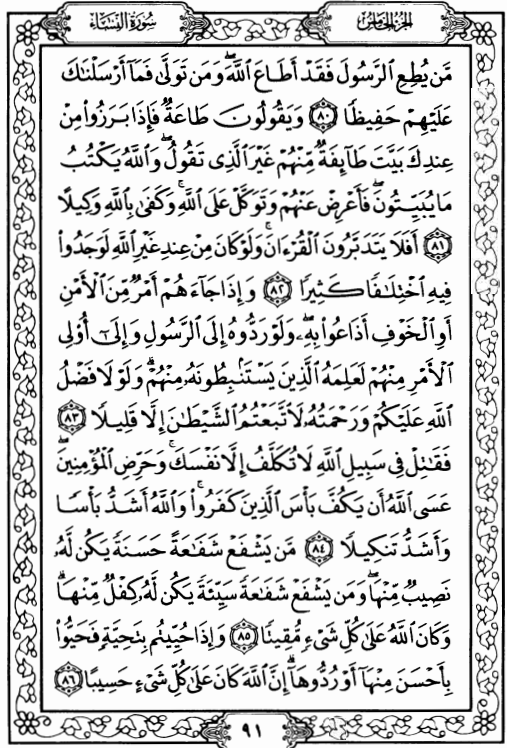 سُورَةُ النِّسَاءِ
الجُزءُ الخَامِسُ
مَّن يُطِعِ ٱلرَّسُولَ فَقَدْ أَطَاعَ ٱللَّهَۖ وَمَن تَوَلَّىٰ فَمَآ أَرْسَلْنَٰكَ
عَلَيْهِمْ حَفِيظًا ٨٠ وَيَقُولُونَ طَاعَةٌ فَإِذَا بَرَزُوا۟ مِنْ
عِندِكَ بَيَّتَ طَآئِفَةٌ مِّنْهُمْ غَيْرَ ٱلَّذِى تَقُولُۖ وَٱللَّهُ يَكْتُبُ
مَا يُبَيِّتُونَۖ فَأَعْرِضْ عَنْهُمْ وَتَوَكَّلْ عَلَى ٱللَّهِۚ وَكَفَىٰ بِٱللَّهِ وَكِيلًا
٨١ أَفَلَا يَتَدَبَّرُونَ ٱلْقُرْءَانَۚ وَلَوْ كَانَ مِنْ عِندِ غَيْرِ ٱللَّهِ لَوَجَدُوا۟
فِيهِ ٱخْتِلَٰفًا كَثِيرًا ٨٢ وَإِذَا جَآءَهُمْ أَمْرٌ مِّنَ ٱلْأَمْنِ
أَوِ ٱلْخَوْفِ أَذَاعُوا۟ بِهِۦۖ وَلَوْ رَدُّوهُ إِلَى ٱلرَّسُولِ وَإِلَىٰٓ أُو۟لِى
ٱلْأَمْرِ مِنْهُمْ لَعَلِمَهُ ٱلَّذِينَ يَسْتَنۢبِطُونَهُۥ مِنْهُمْۗ وَلَوْلَا فَضْلُ
ٱللَّهِ عَلَيْكُمْ وَرَحْمَتُهُۥ لَٱتَّبَعْتُمُ ٱلشَّيْطَٰنَ إِلَّا قَلِيلًا ٨٣
فَقَٰتِلْ فِى سَبِيلِ ٱللَّهِ لَا تُكَلَّفُ إِلَّا نَفْسَكَۚ وَحَرِّضِ ٱلْمُؤْمِنِينَۖ
عَسَى ٱللَّهُ أَن يَكُفَّ بَأْسَ ٱلَّذِينَ كَفَرُوا۟ۚ وَٱللَّهُ أَشَدُّ بَأْسًا
وَأَشَدُّ تَنكِيلًا ٨٤ مَّن يَشْفَعْ شَفَٰعَةً حَسَنَةً يَكُن لَّهُۥ
نَصِيبٌ مِّنْهَاۖ وَمَن يَشْفَعْ شَفَٰعَةً سَيِّئَةً يَكُن لَّهُۥ كِفْلٌ مِّنْهَاۗ
وَكَانَ ٱللَّهُ عَلَىٰ كُلِّ شَىْءٍ مُّقِيتًا ٨٥ وَإِذَا حُيِّيتُم بِتَحِيَّةٍ فَحَيُّوا۟
بِأَحْسَنَ مِنْهَآ أَوْ رُدُّوهَآۗ إِنَّ ٱللَّهَ كَانَ عَلَىٰ كُلِّ شَىْءٍ حَسِيبًا ٨٦
٩١